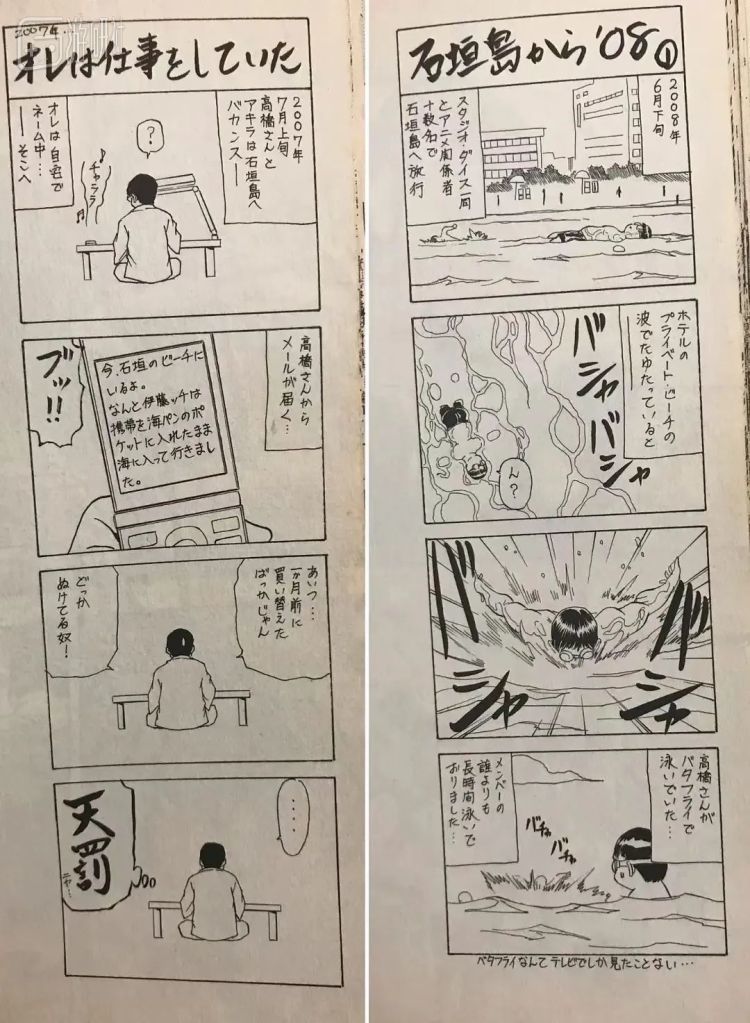 石垣島から'08①
2008年
6月下旬
スタジオ・ダイス一同
とアニメ関係者
十数名で
石垣島へ旅行
ホテルの
プライベート・ビーチの
波でたゆたっていると
バシャバシャ
ん?
バシャ
バシャ
高橋さんが
バタフライで
泳いでいた…
メンバーの
誰よりも
長時間泳いで
おりました…
バチャ
バチャ
バタフライなんてテレビでしか見たことない…
2007年…
オレは仕事をしていた
2007年
7月上旬
高橋さんと
アキラは石垣島へ
バカンス――
?
チャララ
オレは自宅で
ネーム中…
――そこへ
高橋さんから
メールが届く…
今、石垣のビーチに
いるよ。
なんと伊藤ッチは
携帯を海パンのポ
ケットに入れたまま
海に入って行きまし
た。
ブッ!!
あいつ…
一か月前に
買い替えた
ばっかじゃん
どっか
ぬけてる奴!
・・・・
天罰
ニヤ…